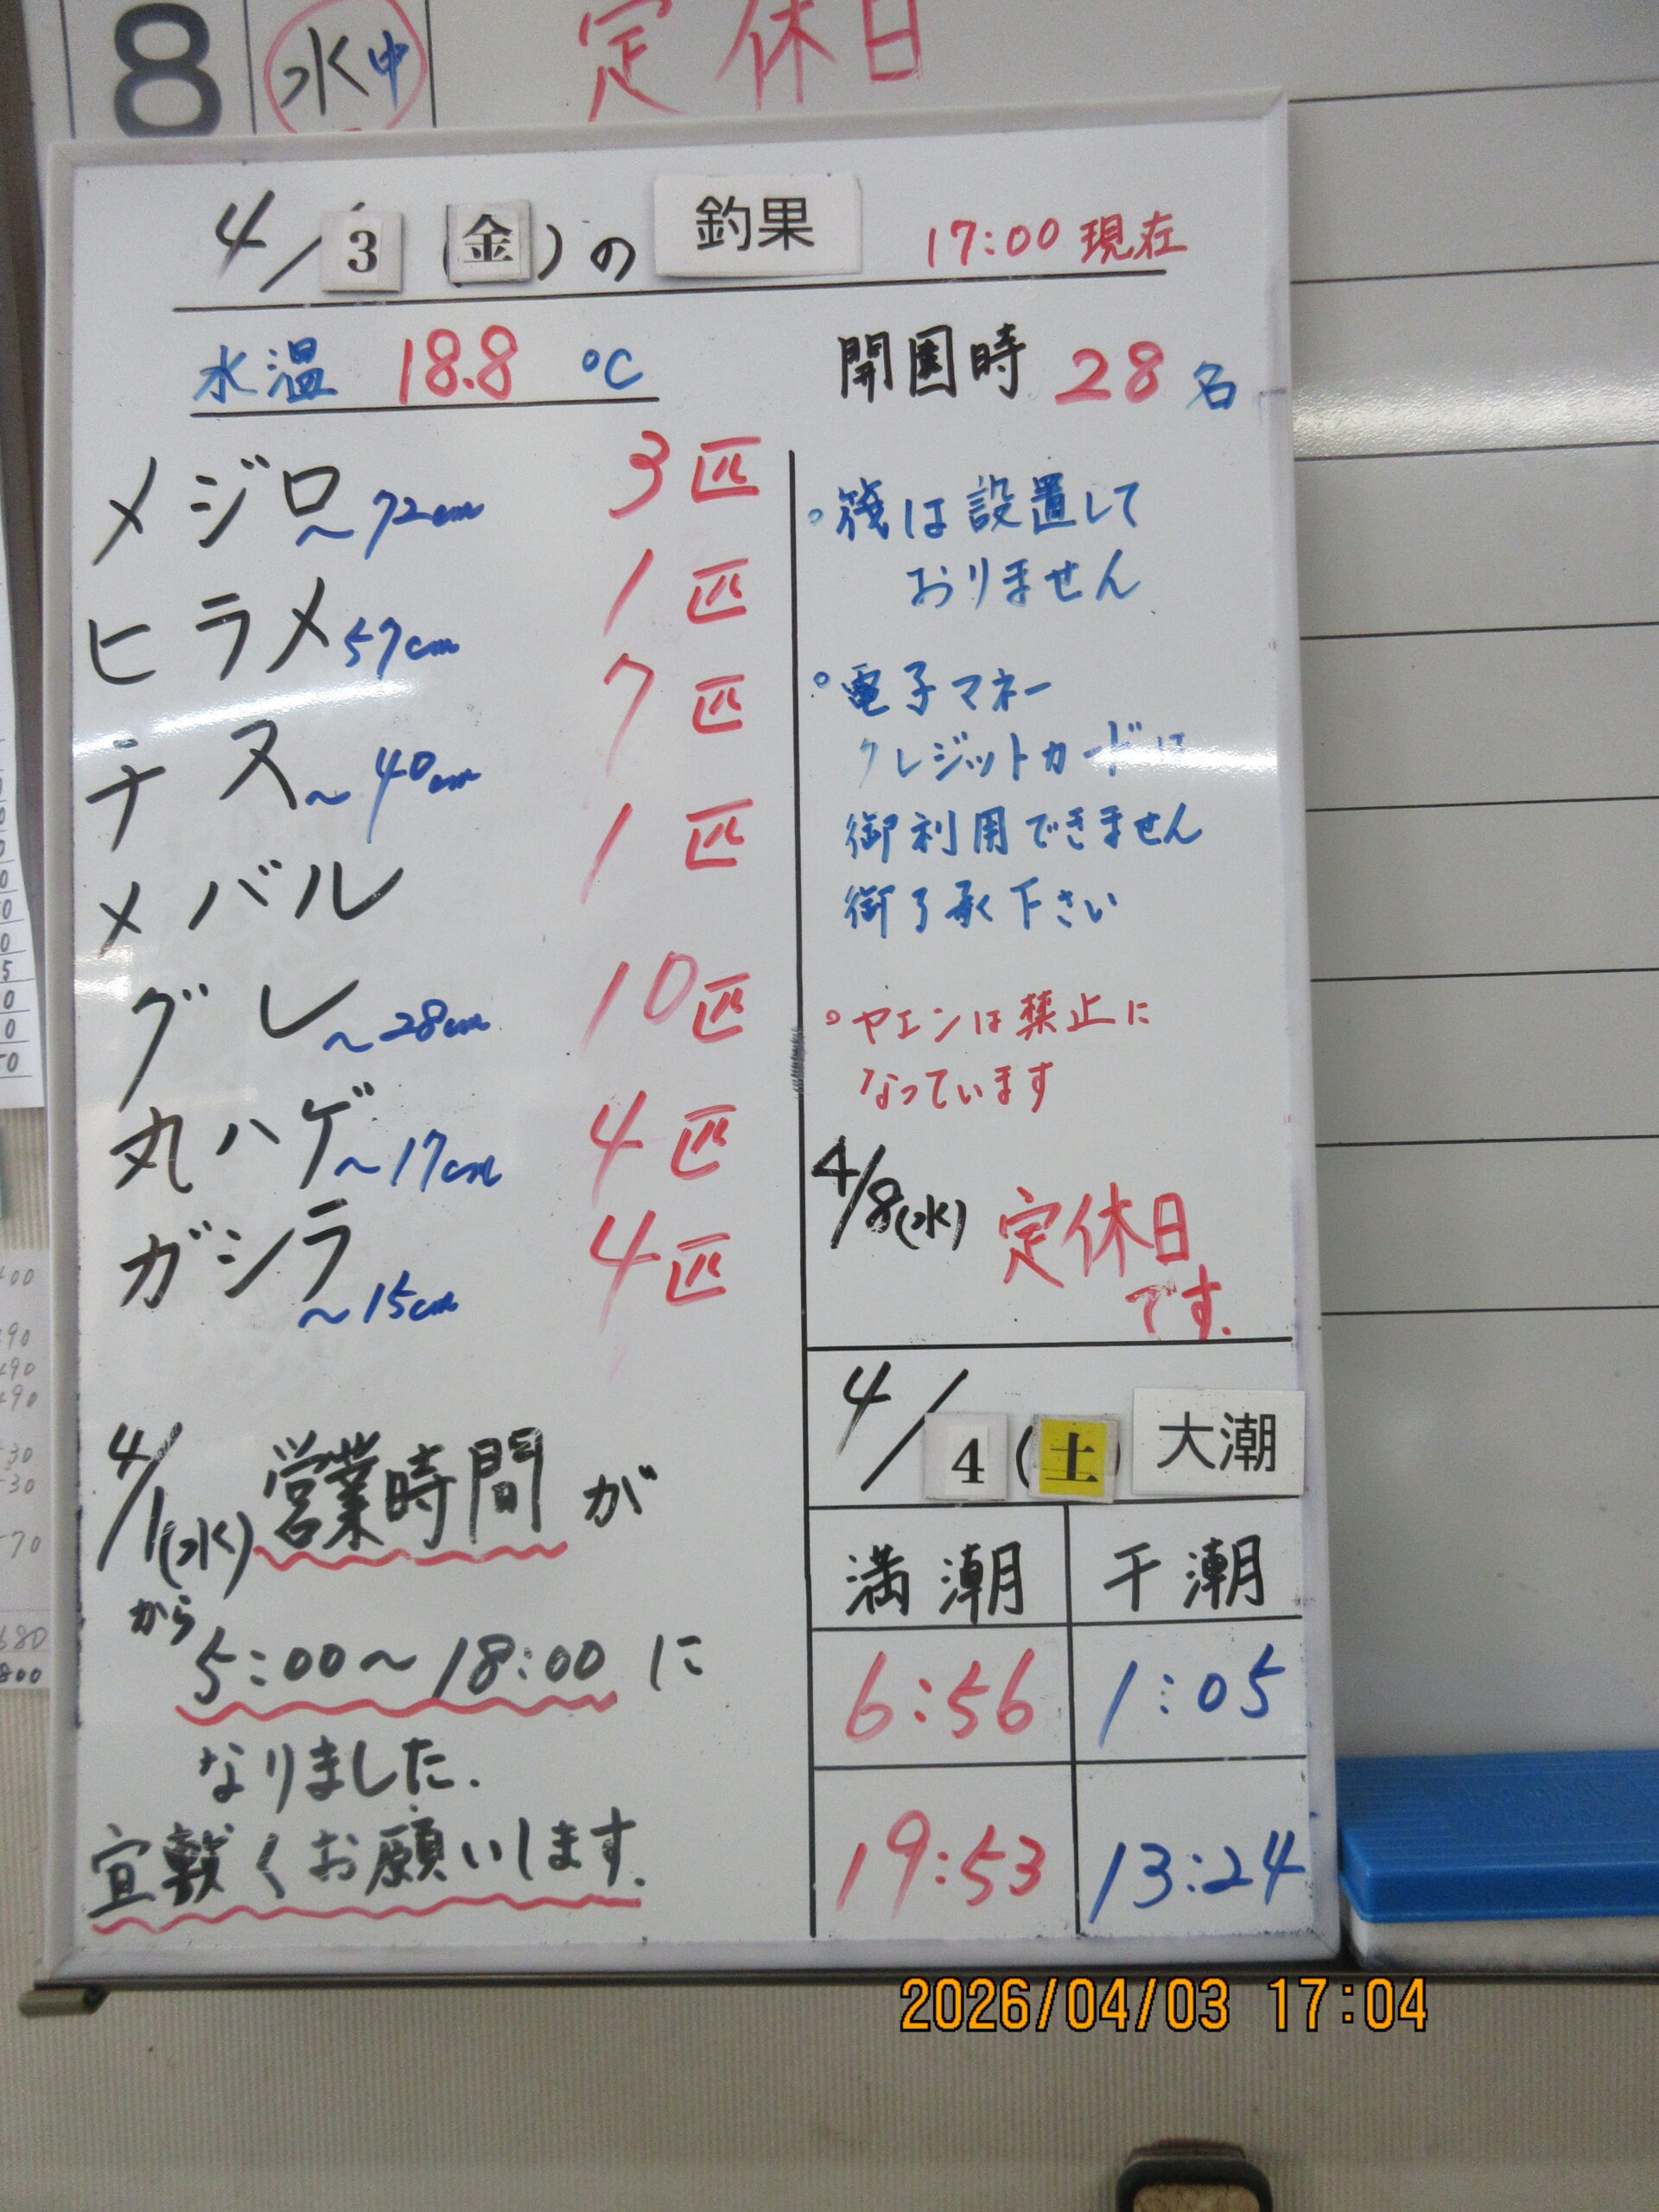 8 水中 定休日
4/3(金)の 釣果 17:00 現在
水温 18.8 ℃
開園時 28名
メジロ ~72cm 3匹
ヒラメ 57cm 1匹
チヌ ~40cm 7匹
メバル 1匹
グレ ~28cm 10匹
丸ハゲ ~17cm 4匹
ガシラ ~15cm 4匹
4/1(水)から 営業時間が
5:00~18:00 に
なりました.
宜敷くお願いします.
。筏は設置して
おりません
。電子マネー
クレジットカードは
御利用できません
御了承下さい
。ヤエンは禁止に
なっています
4/8(水) 定休日
です.
4/4(土) 大潮
満潮 干潮
6:56 1:05
19:53 13:24
2026/04/03 17:04